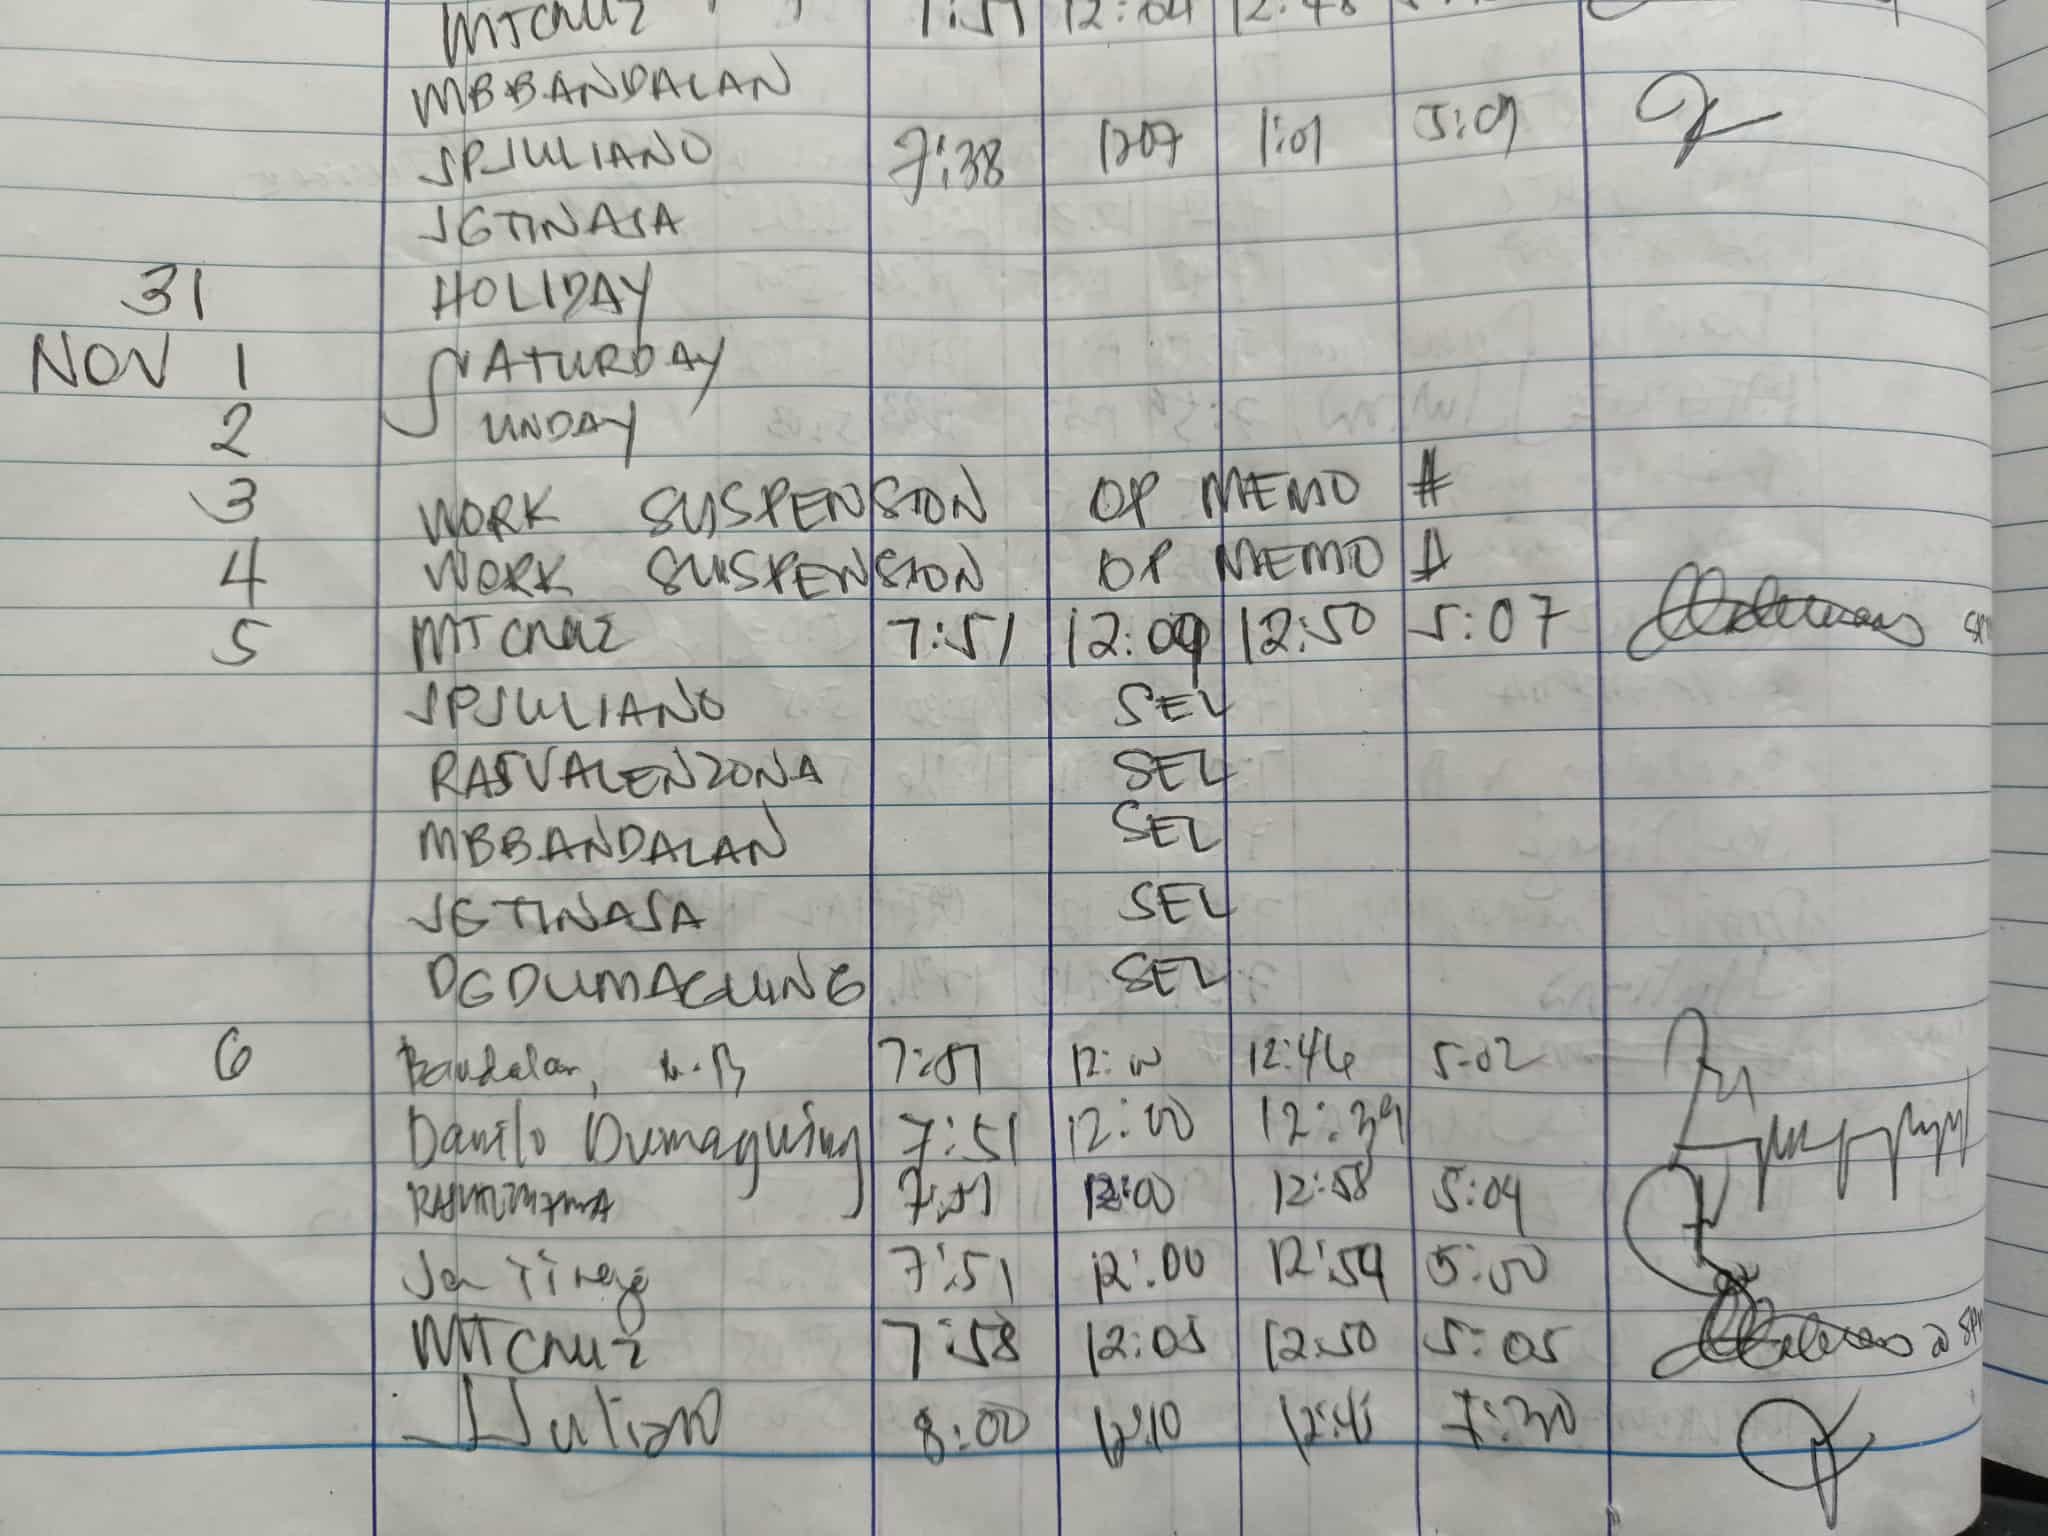 MTCRUZ 7:51 12:04 12:48
MBBANDALAN
SPJULIANO 7:38 1207 1:01 5:09
JGTINASA
31 HOLIDAY
NOV 1 SATURDAY
2 SUNDAY
3 WORK SUSPENSION OP MEMO #
4 WORK SUSPENSION OP MEMO #
5 MTCRUZ 7:51 12:09 12:50 5:07
SPJULIANO SEL
RASVALENZONA SEL
MBBANDALAN SEL
JGTINASA SEL
DGDUMAGUING SEL
6 Bandalan, M.B 7:51 12:00 12:46 5-02
Danilo Dumaguing 7:51 12:00 12:39
7:51 12:00 12:58 5:04
7:51 12:00 12:59 5:00
MTCRUZ 7:58 12:05 12:50 5:05
Juliano 8:00 12:10 7:30